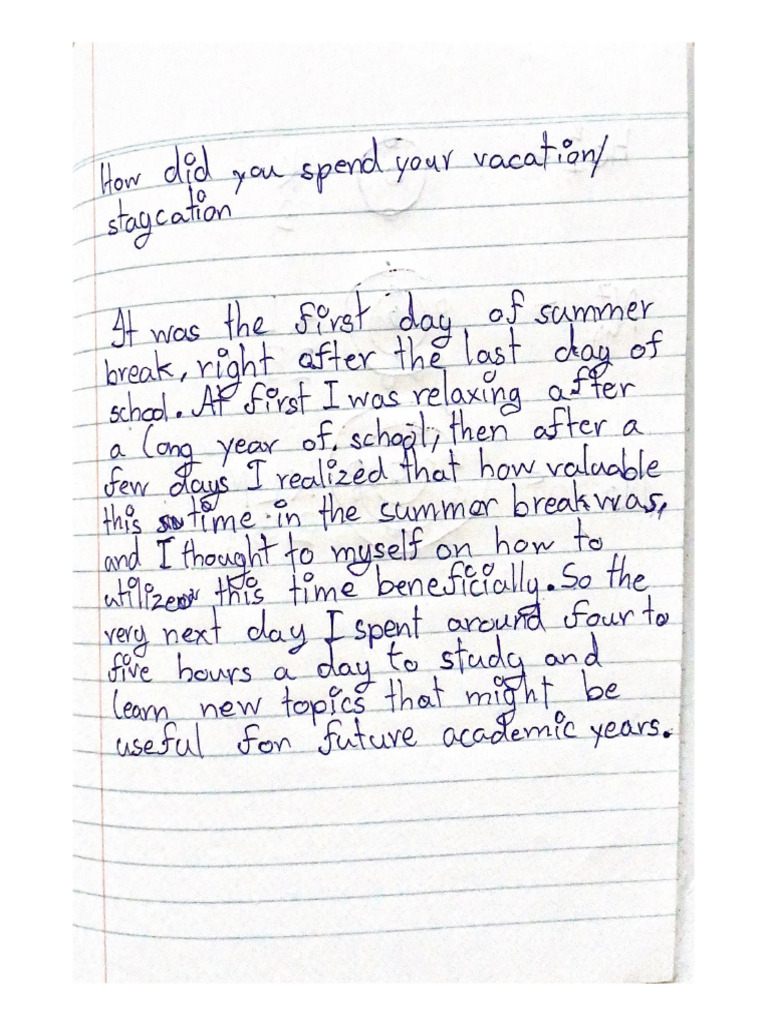 How did you spend your vacation/
staycation
It was the first day of summer
break, right after the last day of
school. At first I was relaxing after
a long year of school, then after a
few days I realized that how valuable
this time in the summer break was,
and I thought to myself on how to
utilize this time beneficially. So the
very next day I spent around four to
five hours a day to study and
learn new topics that might be
useful for future academic years.